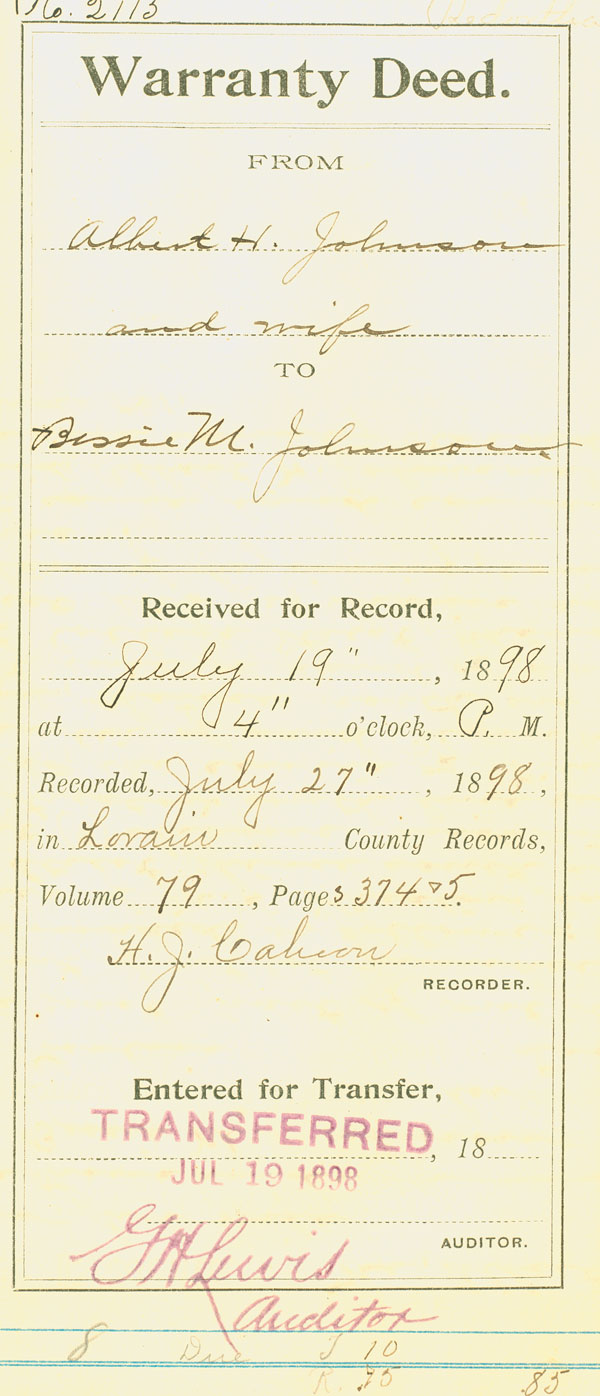 No. 2113
Warranty Deed.
FROM
Albert H. Johnson
and wife
TO
Bessie M. Johnson
Received for Record,
July 19", 1898
at 4" o'clock, P. M.
Recorded, July 27", 1898,
in Lorain County Records,
Volume 79, Pages 374 & 5.
H. J. Cahoon
RECORDER.
Entered for Transfer,
TRANSFERRED, 18
JUL 19 1898
AUDITOR.
G H Lewis
Auditor
8 Due T 10
R. 75 .85